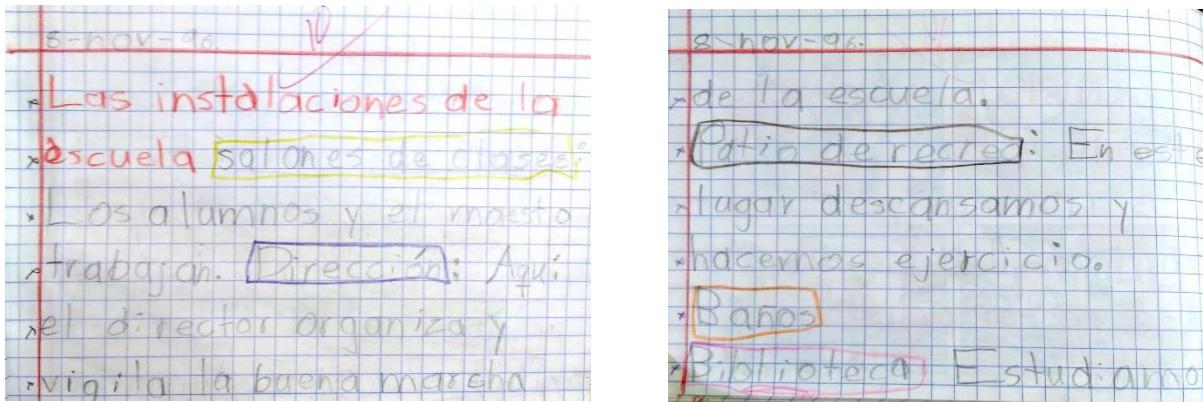 8-nov-96.
10
Las instalaciones de la
escuela salones de clases:
Los alumnos y el maesto
trabajan. Dirección: Aquí
el director organiza y
vigila la buena marcha
8-nov-96.
de la escuela.
Patio de recreo: En este
lugar descansamos y
hacemos ejercicio.
Baños
Biblioteca Estudiamo